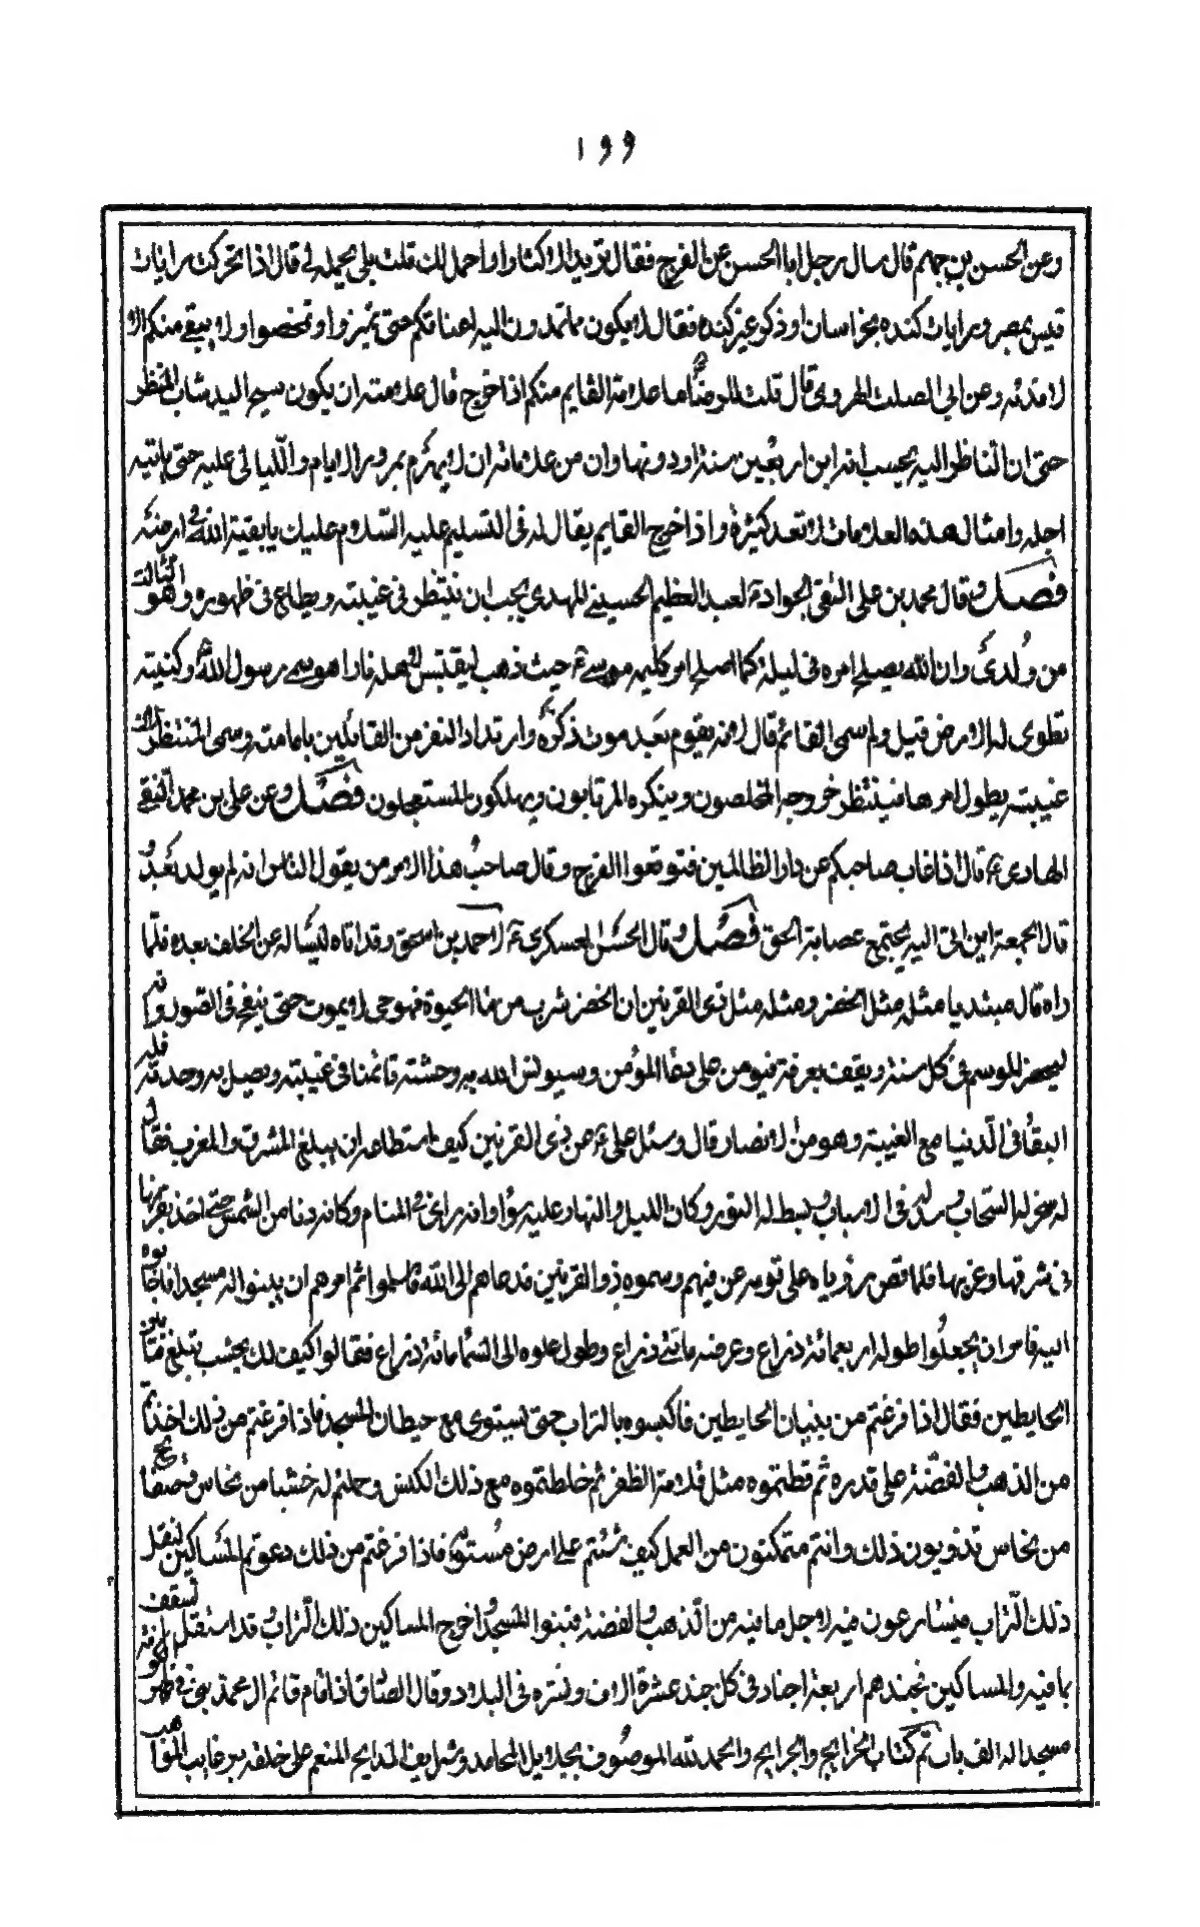 ١٩٩
وعن الحسن بن جهم قال سال رجل ابا الحسن عن الفرج فقال تريد الاكثار او احمل لك قلت بلى تجمله لي قال اذا تحركت رايات
قيس بمصر ورايات كنده بخراسان او ذكر غير كنده فقال لا يكون ما تمدون اليه اعناقكم حتى تميزوا وتمحصوا ولا يبقى منكم الا
الاندر وعن ابي الصلت الهروي قال قلت للرضا ما علامة القايم منكم اذا خرج قال علامته ان يكون شيخ السن شاب المنظر
حتى ان الناظر اليه يحسب انه ابن اربعين سنة او دونها وان من علاماته ان لا يهرم بمرور الايام والليالي عليه حتى ياتيه
اجله وامثال هذه العلامات لا تعد كثيرة واذا خرج القايم يقال له في التسليم عليه السلام عليك يا بقية الله في ارضه
فصل وقال محمد بن علي التقي الجواد ع لعبد العظيم الحسيني المهدي يجب ان ينتظر في غيبته ويطاع في ظهوره وهو الثالث
من ولدي وان الله يصلح امره في ليلة كما اصلح امر كليمه موسى ع حيث ذهب ليقتبس لاهله نارا هو سمي رسول الله وكنيته
تطوى له الارض قيل ولم سمي القائم قال لانه يقوم بعد موت ذكره وارتداد النفر من القائلين بامامته وسمي المنتظر لان
غيبته يطول امرها فينتظر خروجه المخلصون وينكره المرتابون ويهلكون المستعجلون فصل وعن علي بن محمد النقي
الهادي ع قال اذا غاب صاحبكم عن دار الظالمين فتوقعوا الفرج وقال صاحب هذا الامر من يقول الناس انه لم يولد بعد
قال الجمعة ابن ابني اليه يجتمع عصابة الحق فصل وقال الحسن العسكري ع لاحمد بن اسحق وقد اتاه ليساله عن الخلف بعده فلما
راه قال مبتديا مثله مثل الخضر ومثله مثل ذي القرنين ان الخضر شرب من ماء الحيوة فهو حي لا يموت حتى ينفخ في الصور وانه
ليحضر الموسم في كل سنة ويقف بعرفة فيؤمن على دعاء المؤمن وسيونس الله به وحشته قائمنا في غيبته ويصل به وحدته فله
البقاء في الدنيا مع الغيبة وهو من الانصار قال وسئل علي ع عن ذي القرنين كيف استطاع ان يبلغ المشرق والمغرب فقال
له سخر له السحاب ومد له في الاسباب وبسط له النور وكان الليل والنهار عليه سواء وانه راى في المنام وكانه دنا من الشمس حتى اخذ بقرنيها
في شرقها وغربها فلما قص رؤياه على قومه عن فيهم وسموه ذو القرنين فدعاهم الى الله فاسلموا ثم امرهم ان يبنوا له مسجدا فاجابوه
اليه فامر ان يجعلوا طوله اربعمائة ذراع وعرضه مائتي ذراع وطول علوه الى السماء مائة ذراع فقالوا كيف لك بخشب تبلغ ما بين
الحايطين فقال اذا فرغتم من بنيان الحايطين فاكبسوه بالتراب حتى يستوي مع حيطان المسجد فاذا فرغتم من ذلك اخذتم
من الذهب والفضة على قدره ثم قطعتموه مثل قلامة الظفر ثم خلطتموه مع ذلك الكبس وعملتم له خشبا من نحاس وصفايح
من نحاس تذوبون ذلك وانتم متمكنون من العمل كيف شئتم على ارض مستوية فاذا فرغتم من ذلك دعوتم المساكين لنقل
ذلك التراب فيتسارعون فيه لاجل ما فيه من الذهب والفضة فبنوا المسجد واخرج المساكين ذلك التراب وقد استقل السقف
بما فيه والمساكين فجندهم اربعة اجناد في كل جند عشرة الاف ونشرهم في البلاد وقال الصادق اذا قام قائم ال محمد بنى في ظهر الكوفة
مسجدا له الف باب تم كتاب الخرايج والجرايح والحمد لله الموصوف بجلايل المحامد وشرايف المدايح المنعم على خلقه برغايب المواهب